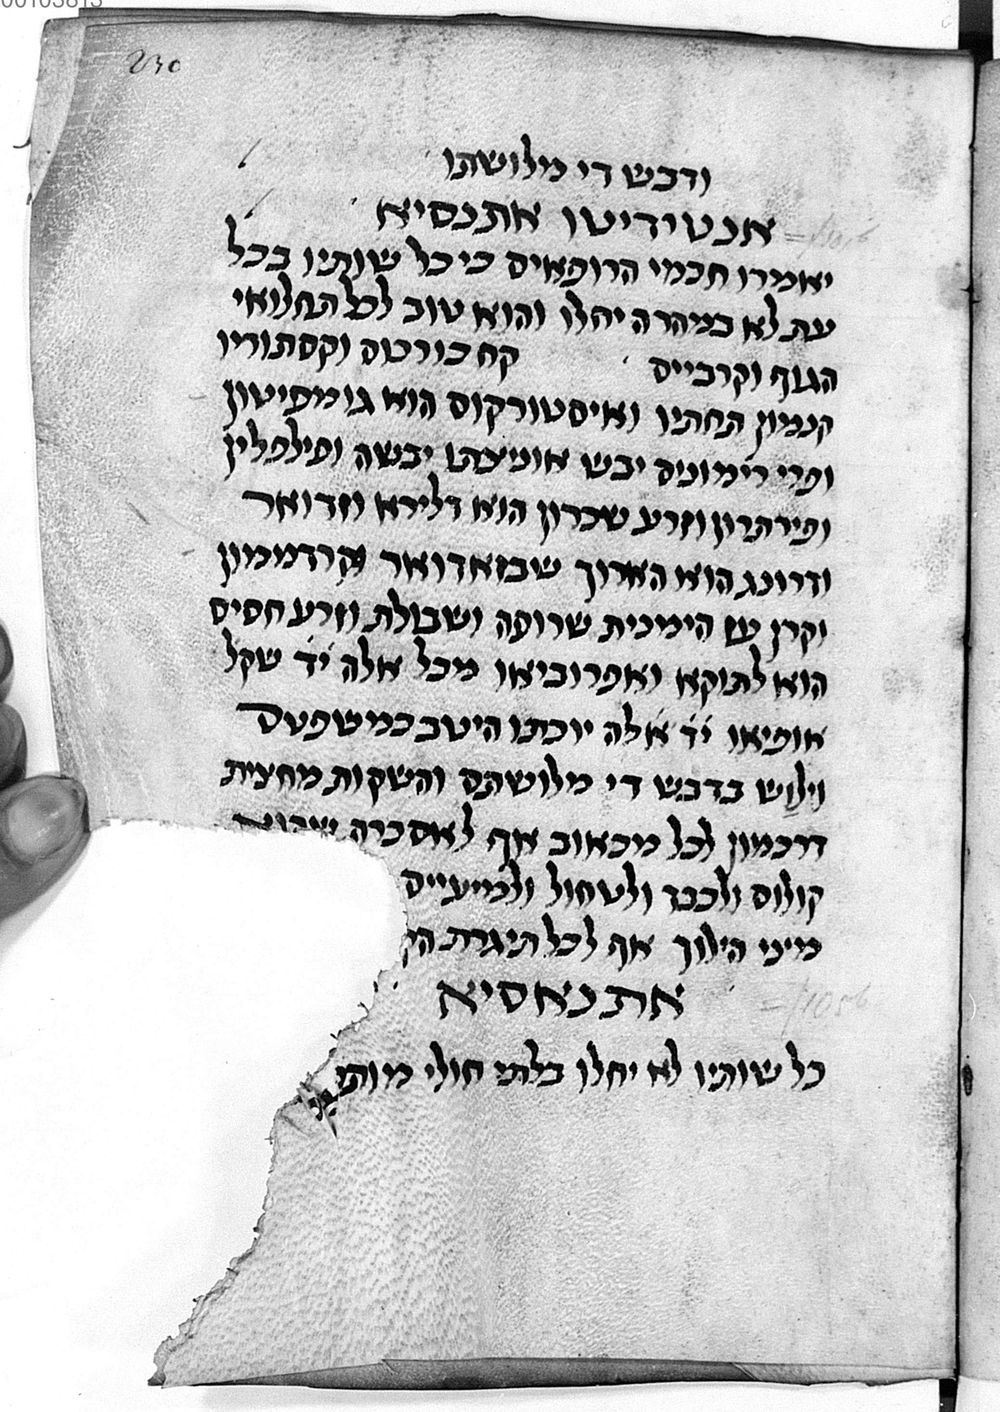 230
ודבש די מלושתו
אנטידיטו אתנסיא
יאמירו חכמי הרופאים כי כל שותיו בכל
עת לא במהרה יחלו והוא טוב לכל תחלואי
הגוף וקרביים קח כורטס וקסתוריו
קנמון תחתיו ואיסטורקוס הוא גומסיטון
ופרי רימונים יבש אומצתו יבשה ופילפלין
ופירתרון וזרע שכרון הוא דלירא וזדואר
ודרונג הוא הארוך שבזאדואר וקרדממון
וקרן עז הימנית שרופה ושבולת וזרע חסיס
הוא לתוקא ואפרוביאו מכל אלה יד שקל
אופיאו יד אלה יוכתו היטב כמשפטם
וילוש בדבש די מלושתם והשקות מחצית
דרכמון לכל מכאוב אף לאסכרה
קולוס ולכבד ולטחול ולמיעיים
מיני הילוך אף לכל תיגרת
אתנאסיא
כל שותיו לא יחלו בלתי חולי מותו